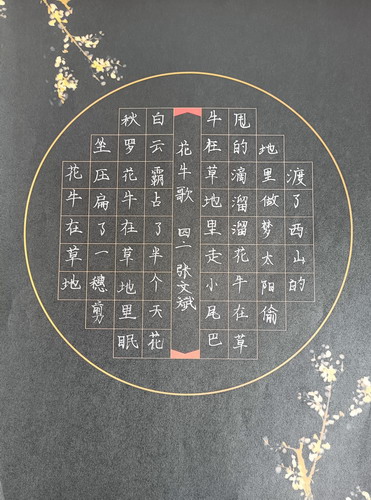 花牛在草地
坐压扁了一穗剪
秋罗花牛在草地里眠
白云霸占了半个天花
花牛歌 四二 张文斌
牛在草地里走小尾巴
甩的滴溜溜花牛在草
地里做梦太阳偷
渡了西山的